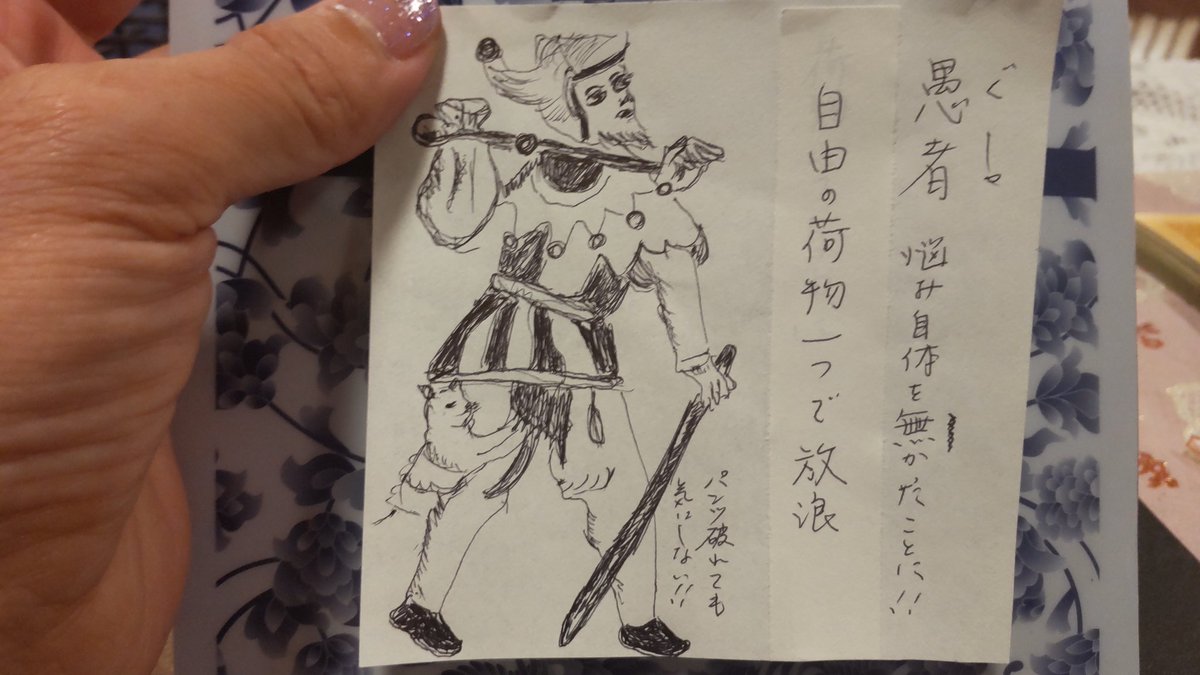 ぐ!
愚者 悩み自体を無かたことに!!
自由の荷物一つで放浪
パンツ破れても
気にしない!!